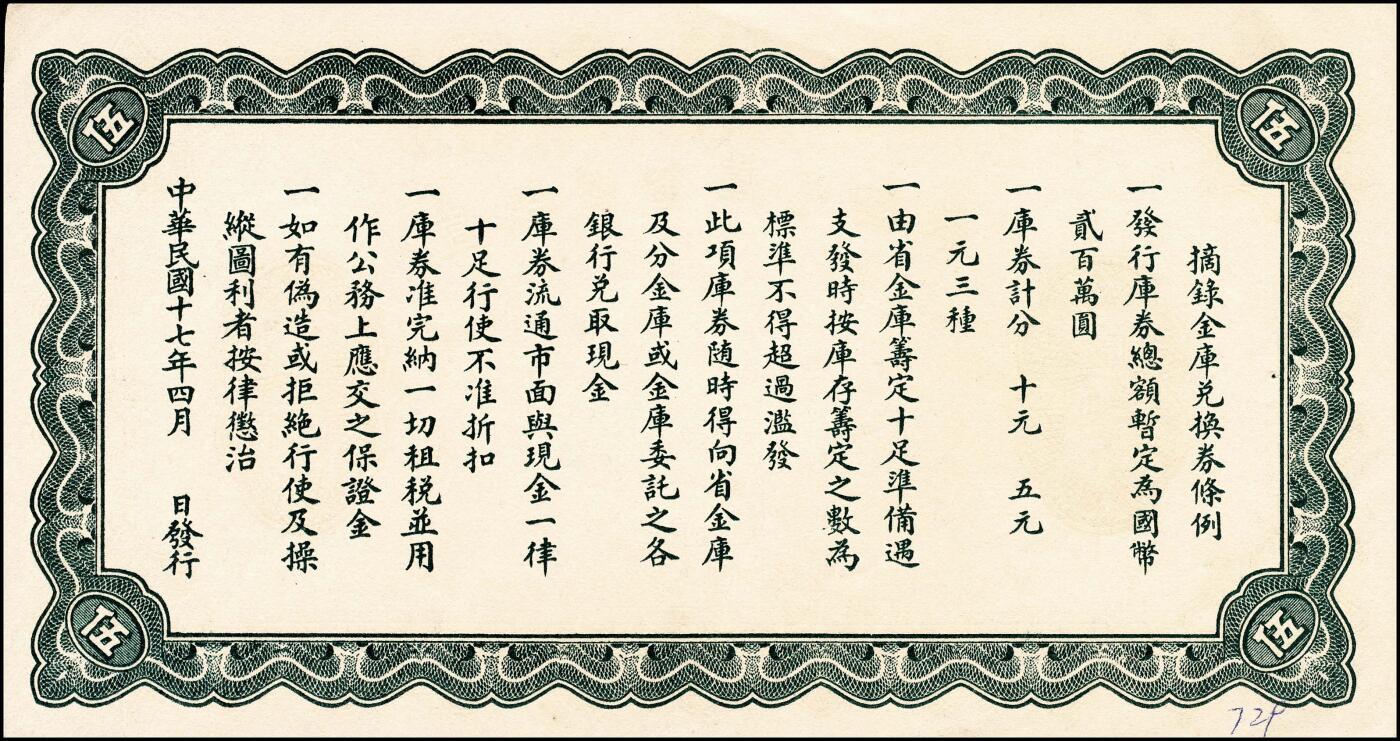 摘錄金庫兌換券條例
一發行庫券總額暫定為國幣
貳百萬圓
一庫券計分 十元 五元
一元三種
一由省金庫籌定十足準備遇
支發時按庫存籌定之數為
標準不得超過濫發
一此項庫券随時得向省金庫
及分金庫或金庫委託之各
銀行兌取現金
一庫券流通市面與現金一律
十足行使不准折扣
一庫券准完納一切租税並用
作公務上應交之保證金
一如有偽造或拒絶行使及操
縱圖利者按律懲治
中華民國十七年四月 日發行
伍
伍
伍
伍
729